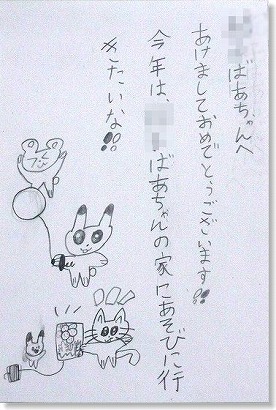 ばあちゃんへ
あけましておめでとうございます!!
今年は、ばあちゃんの家にあそびに行
きたいな!!